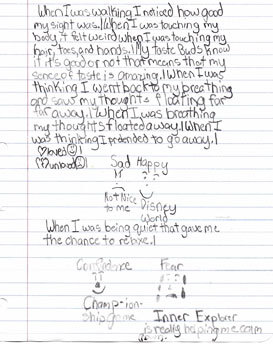 When I was walking I noticed how good
my sight was. When I was touching my
body it felt weird when I was touching my
hair, toes, and hands. My taste Buds know
if it's good or not that means that my
sence of taste is amazing. When I was
thinking I went back to my breathing
and saw my thoughts floating far
far away. When I was breathing
my thoughts floated away. When I
was thinking I pretended to go away.
loved
Sad Happy
Not Nice Disney
to me World
When I was being quiet that gave me
the chance to
Confidence Fear
Champ-ion-
ship game Inner Explorer
is really helping me calm